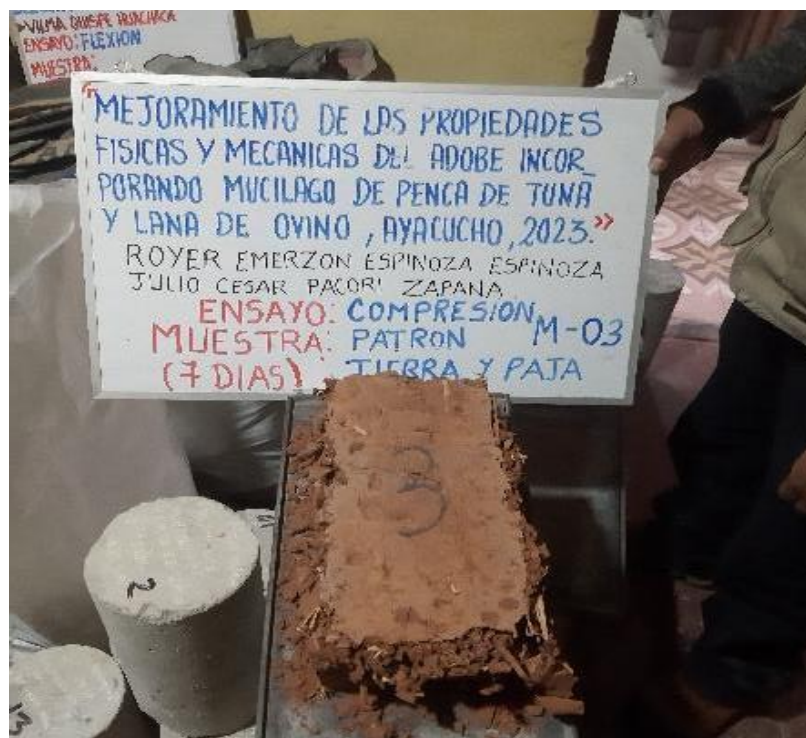 VILMA QUISPE HUACHACA
ENSAYO: FLEXION
MUESTRA:
"MEJORAMIENTO DE LAS PROPIEDADES
FISICAS Y MECANICAS DEL ADOBE INCOR_
PORANDO MUCILAGO DE PENCA DE TUNA
Y LANA DE OVINO, AYACUCHO, 2023."
ROYER EMERZON ESPINOZA ESPINOZA
JULIO CESAR PACORI ZAPANA
ENSAYO: COMPRESION
MUESTRA: PATRON M-03
(7 DIAS) TIERRA Y PAJA
3
2
13